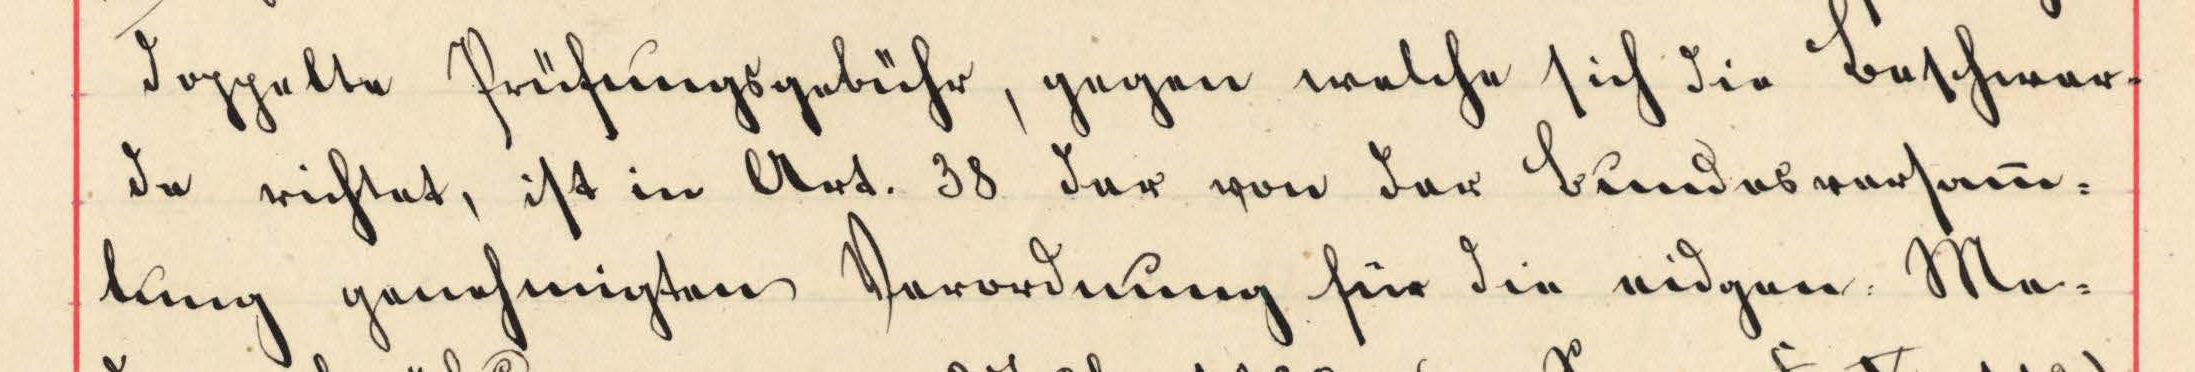 doppelte Prüfungsgebühr, gegen welche sich die Beschwer-
de richtet, ist in Art. 38 der von der Bundesversam̅-
lung genehmigten Verordnung für die eidgen. Me-